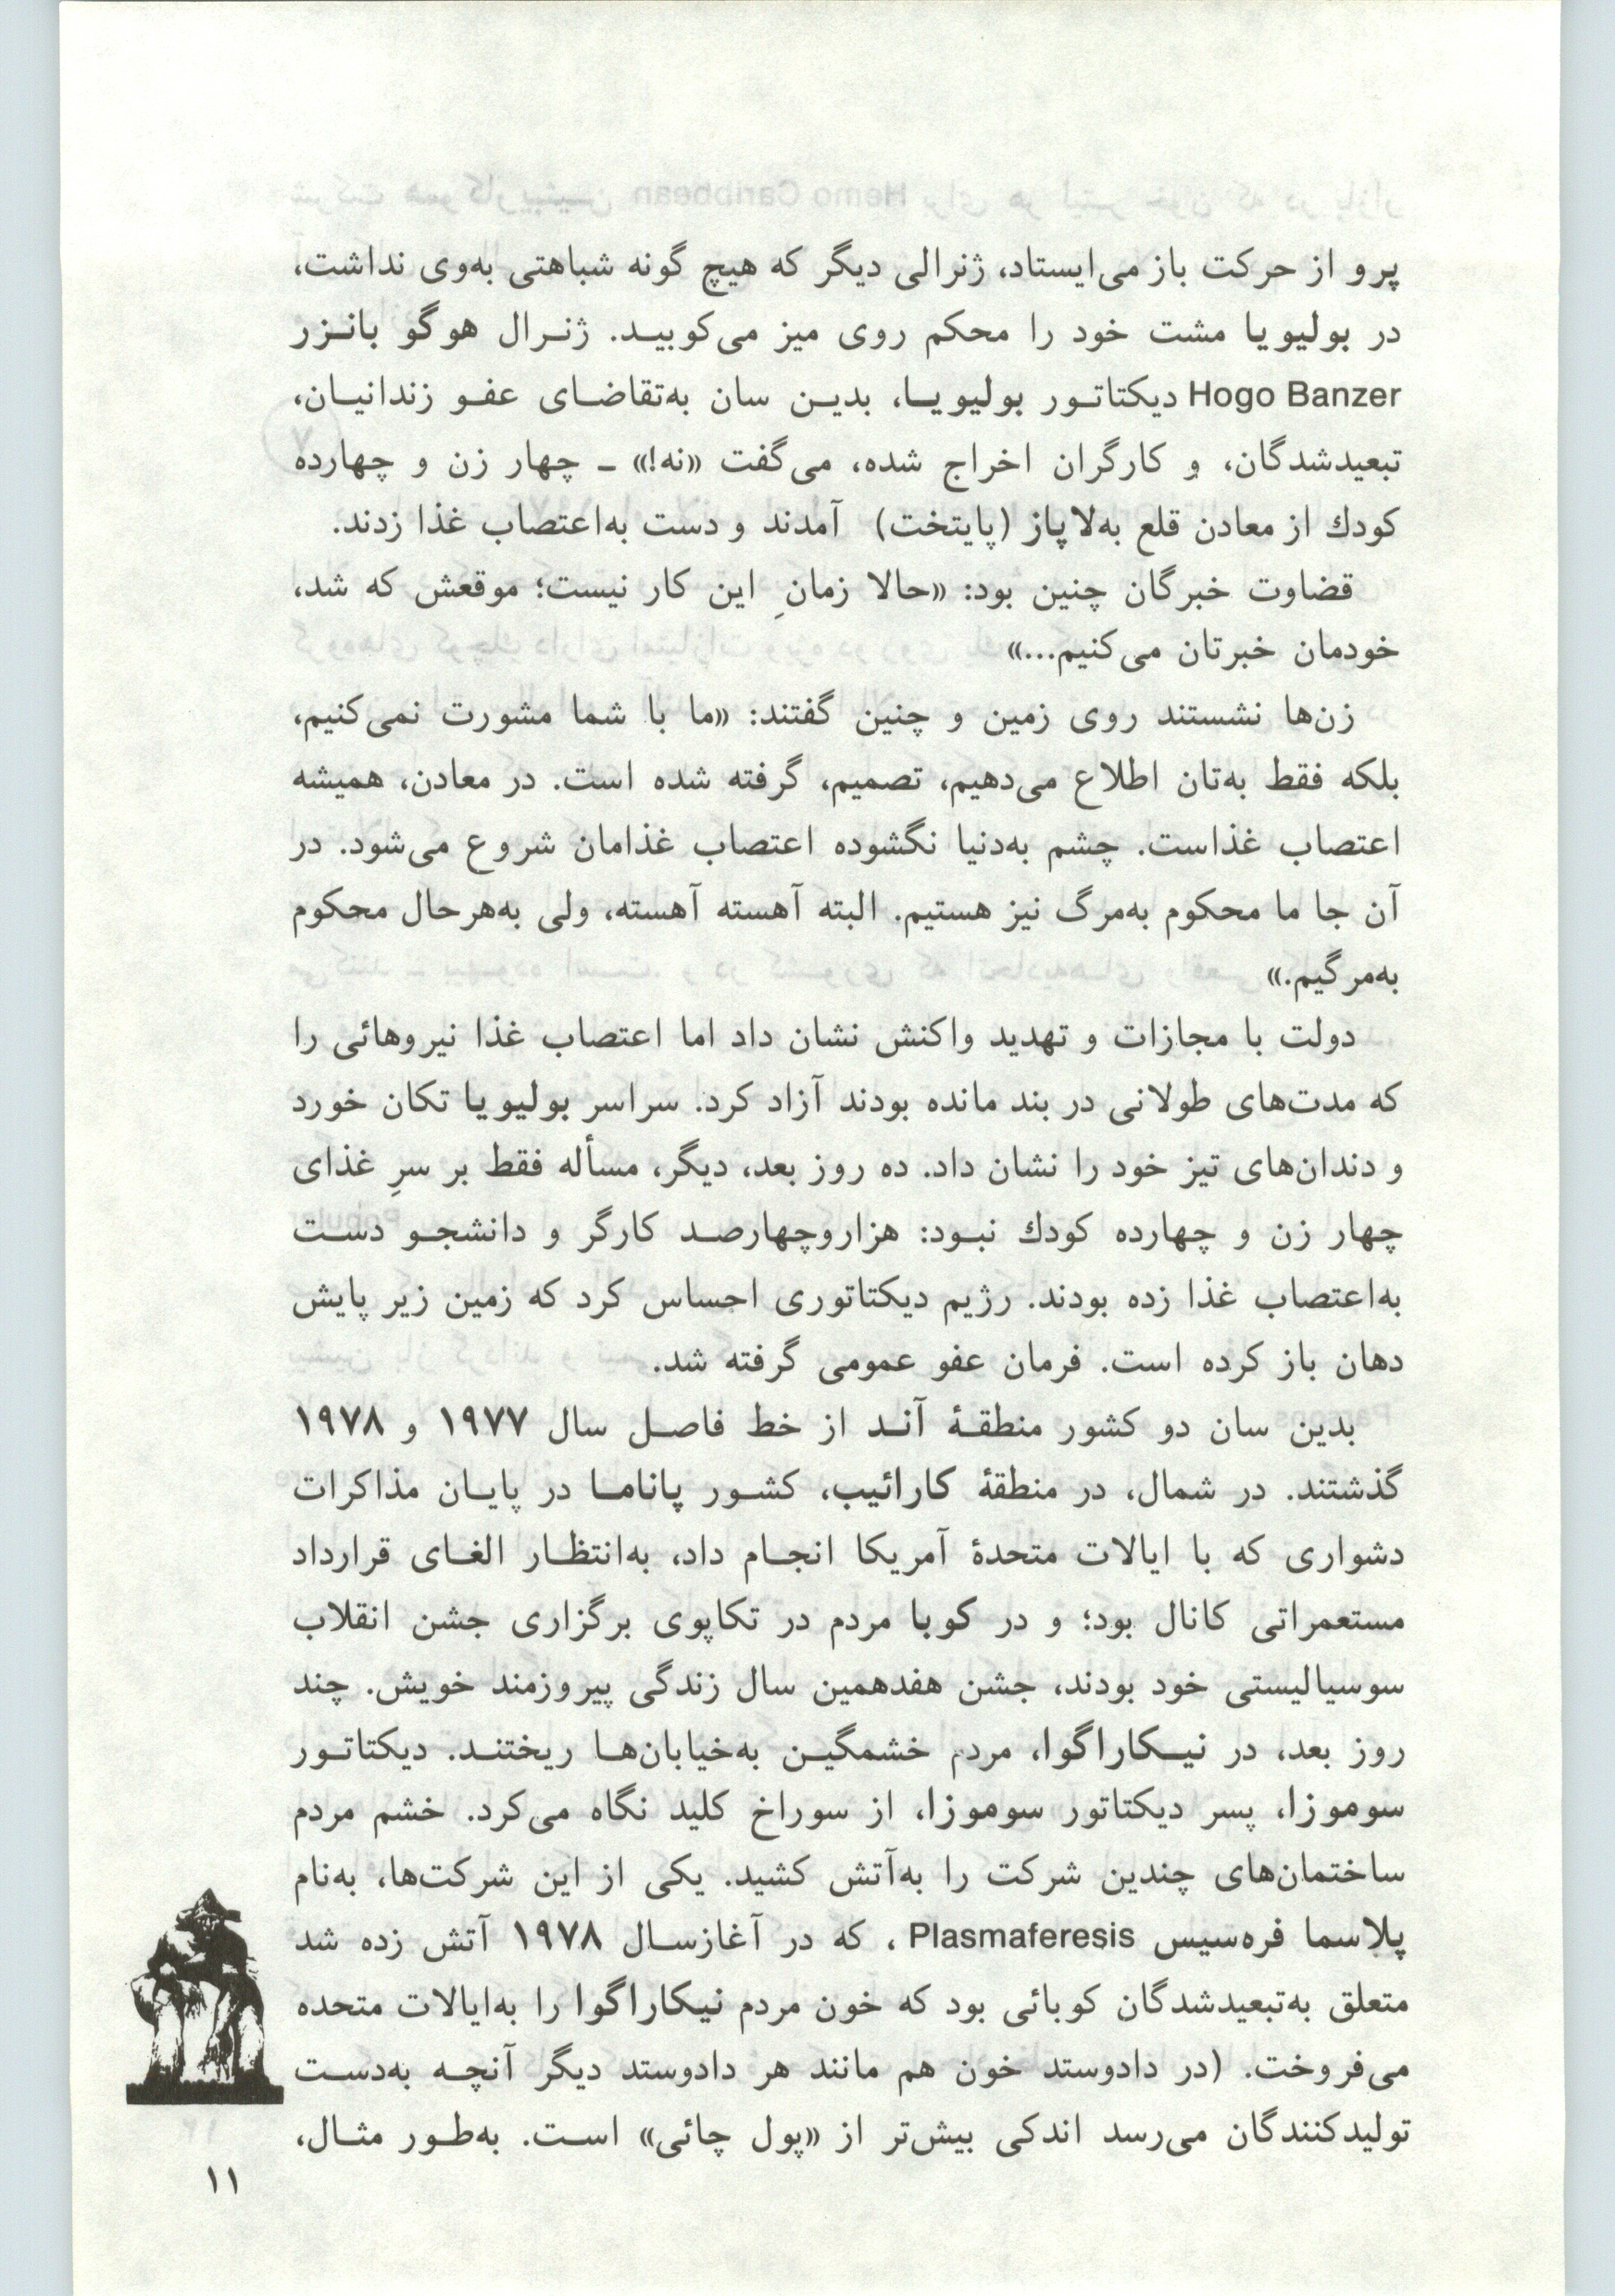 پرو از حرکت باز می‌ایستاد، ژنرالی دیگر که هیچ گونه شباهتی به‌وی نداشت،
در بولیویا مشت خود را محکم روی میز می‌کوبیـد. ژنـرال هوگو بانـزر
Hogo Banzer دیکتاتـور بولیویـا، بدیـن سان به‌تقاضـای عفـو زندانیـان،
تبعیدشدگان، و کارگران اخراج شده، می‌گفت «نه!» ـ چهار زن و چهارده
کودك از معادن قلع به‌لاپاز (پایتخت) آمدند و دست به‌اعتصاب غذا زدند.
قضاوت خبرگان چنین بود: «حالا زمانِ این کار نیست؛ موقعش که شد،
خودمان خبرتان می‌کنیم...»
زن‌ها نشستند روی زمین و چنین گفتند: «ما با شما مشورت نمی‌کنیم،
بلکه فقط به‌تان اطلاع می‌دهیم، تصمیم، گرفته شده است. در معادن، همیشه
اعتصاب غذاست. چشم به‌دنیا نگشوده اعتصاب غذامان شروع می‌شود. در
آن جا ما محکوم به‌مرگ نیز هستیم. البته آهسته آهسته، ولی به‌هرحال محکوم
به‌مرگیم.»
دولت با مجازات و تهدید واکنش نشان داد اما اعتصاب غذا نیروهائی را
که مدت‌های طولانی در بند مانده بودند آزاد کرد. سراسر بولیویا تکان خورد
و دندان‌های تیز خود را نشان داد. ده روز بعد، دیگر، مسأله فقط بر سرِ غذای
چهار زن و چهارده کودك نبـود: هزاروچهارصـد کارگر و دانشجـو دسـت
به‌اعتصاب غذا زده بودند. رژیم دیکتاتوری احساس کرد که زمین زیر پایش
دهان باز کرده است. فرمان عفو عمومی گرفته شد.
بدین سان دو کشور منطقـۀ آنـد از خط فاصـل سال ۱۹۷۷ و ۱۹۷۸
گذشتند. در شمال، در منطقۀ کارائیب، کشـور پانامـا در پایـان مذاکرات
دشواری که با ایالات متحدۀ آمریکا انجـام داد، به‌انتظـار الغـای قرارداد
مستعمراتی کانال بود؛ و در کوبا مردم در تکاپوی برگزاری جشن انقلاب
سوسیالیستی خود بودند، جشن هفدهمین سال زندگی پیروزمند خویش. چند
روز بعد، در نیـکاراگوا، مردم خشمگیـن به‌خیابان‌هـا ریختنـد. دیکتاتـور
سوموزا، پسر دیکتاتور سوموزا، از سوراخ کلید نگاه می‌کرد. خشم مردم
ساختمان‌های چندین شرکت را به‌آتش کشید. یکی از این شرکت‌ها، به‌نام
پلاسما فره‌سیس Plasmaferesis ، که در آغازسـال ۱۹۷۸ آتش زده شد
متعلق به‌تبعیدشدگان کوبائی بود که خون مردم نیکاراگوا را به‌ایالات متحده
می‌فروخت. (در دادوستد خون هم مانند هر دادوستد دیگر آنچـه به‌دسـت
تولیدکنندگان می‌رسد اندکی بیش‌تر از «پول چائی» اسـت. به‌طـور مثـال،
۱۱